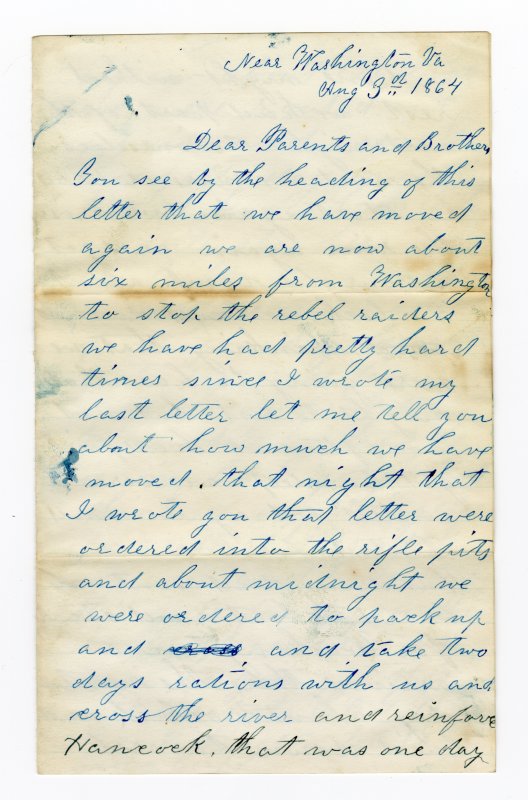 Near Washington Va
Aug 3rd 1864
Dear Parents and Brother,
You see by the heading of this
letter that we have moved
again we are now about
six miles from Washington
to stop the rebel raiders
we have had pretty hard
times since I wrote my
last letter let me tell you
about how much we have
moved. that night that
I wrote you that letter were
ordered into the rifle pits
and about midnight we
were ordered to pack up
and cross and take two
days rations with us and
cross the river and reinforce
Hancock. that was one day